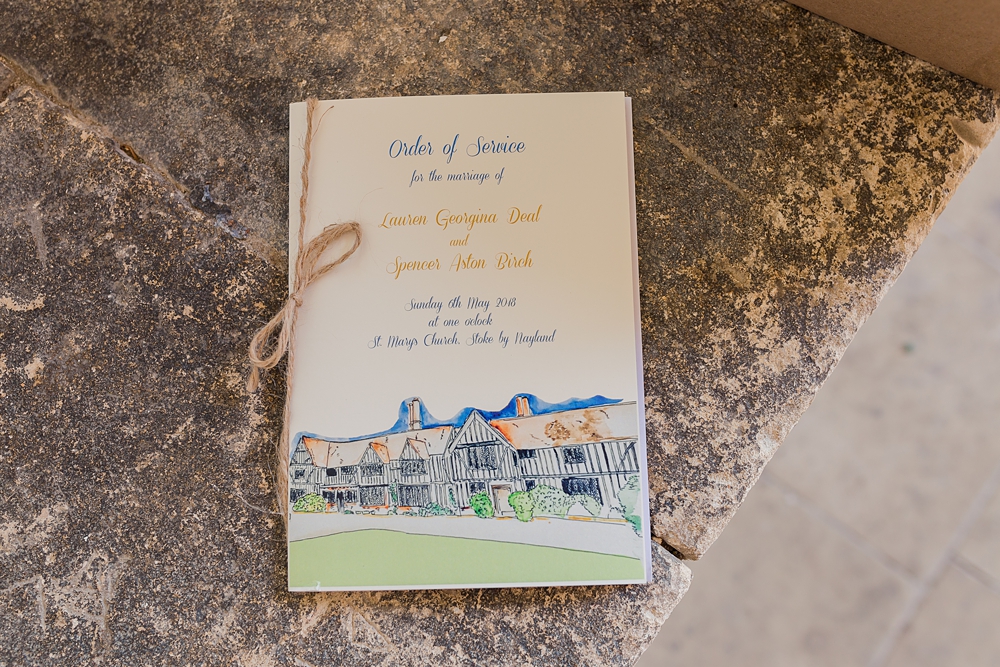 Order of Service
for the marriage of
Lauren Georgina Deal
and
Spencer Aston Birch
Sunday 6th May 2018
at one o'clock
St. Mary's Church, Stoke by Nayland